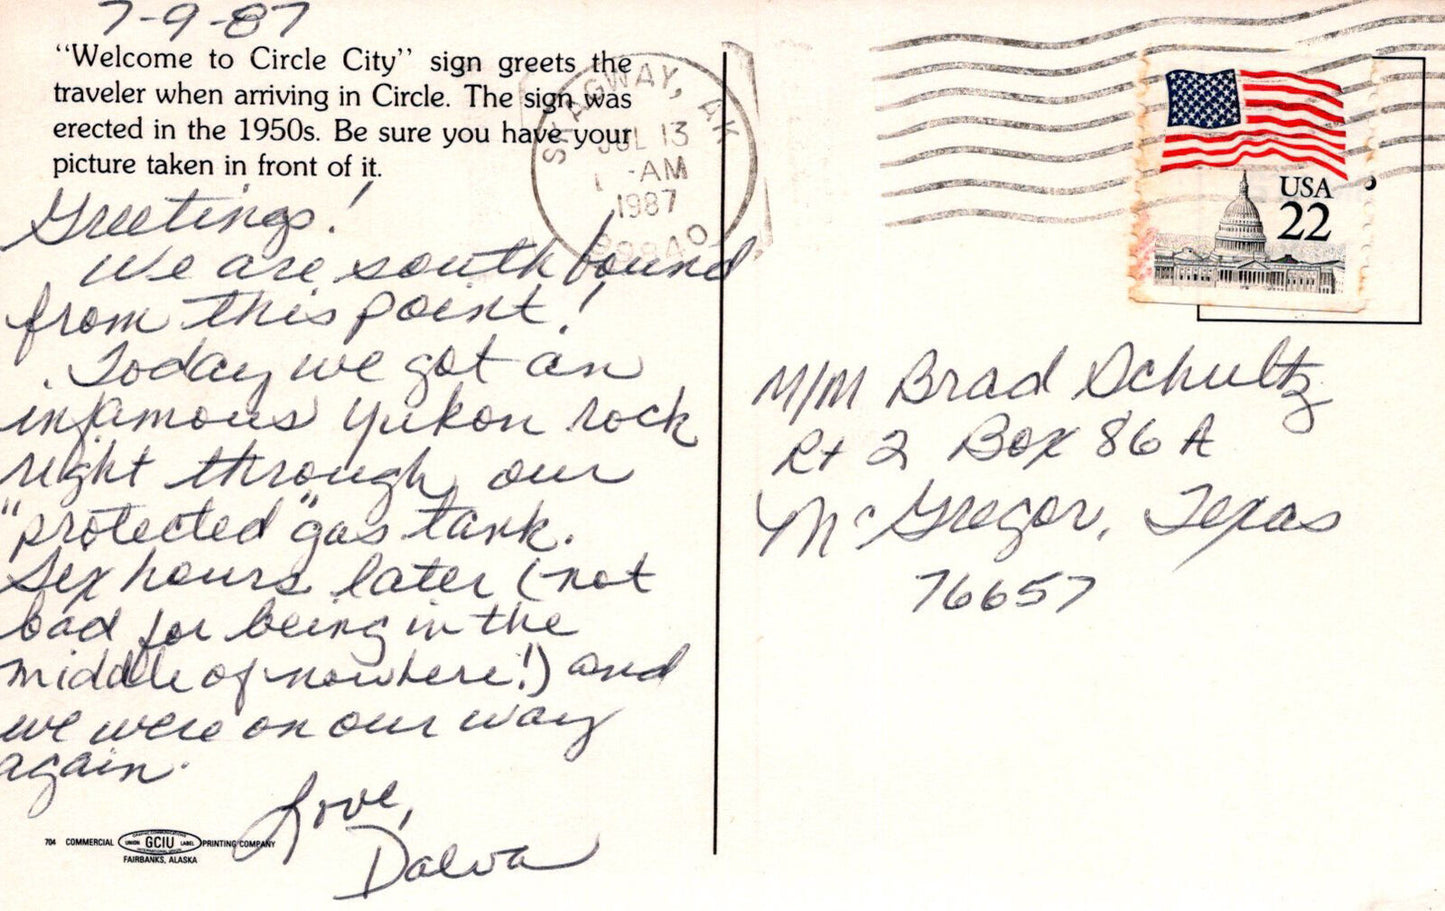 7-9-87
"Welcome to Circle City" sign greets the
traveler when arriving in Circle. The sign was
erected in the 1950s. Be sure you have your
picture taken in front of it.
Greetings!
We are southbound
from this point!
Today we got an
infamous Yukon rock
right through our
"protected" gas tank.
Six hours later (not
bad for being in the
middle of nowhere!) and
we were on our way
again.
Love,
Dalva
704 COMMERCIAL GCIU PRINTING COMPANY
UNION LABEL
FAIRBANKS, ALASKA
SKAGWAY, AK
JUL 13
AM
1987
99840
USA
22
M/M Brad Schultz
Rt 2 Box 86 A
McGregor, Texas
76657